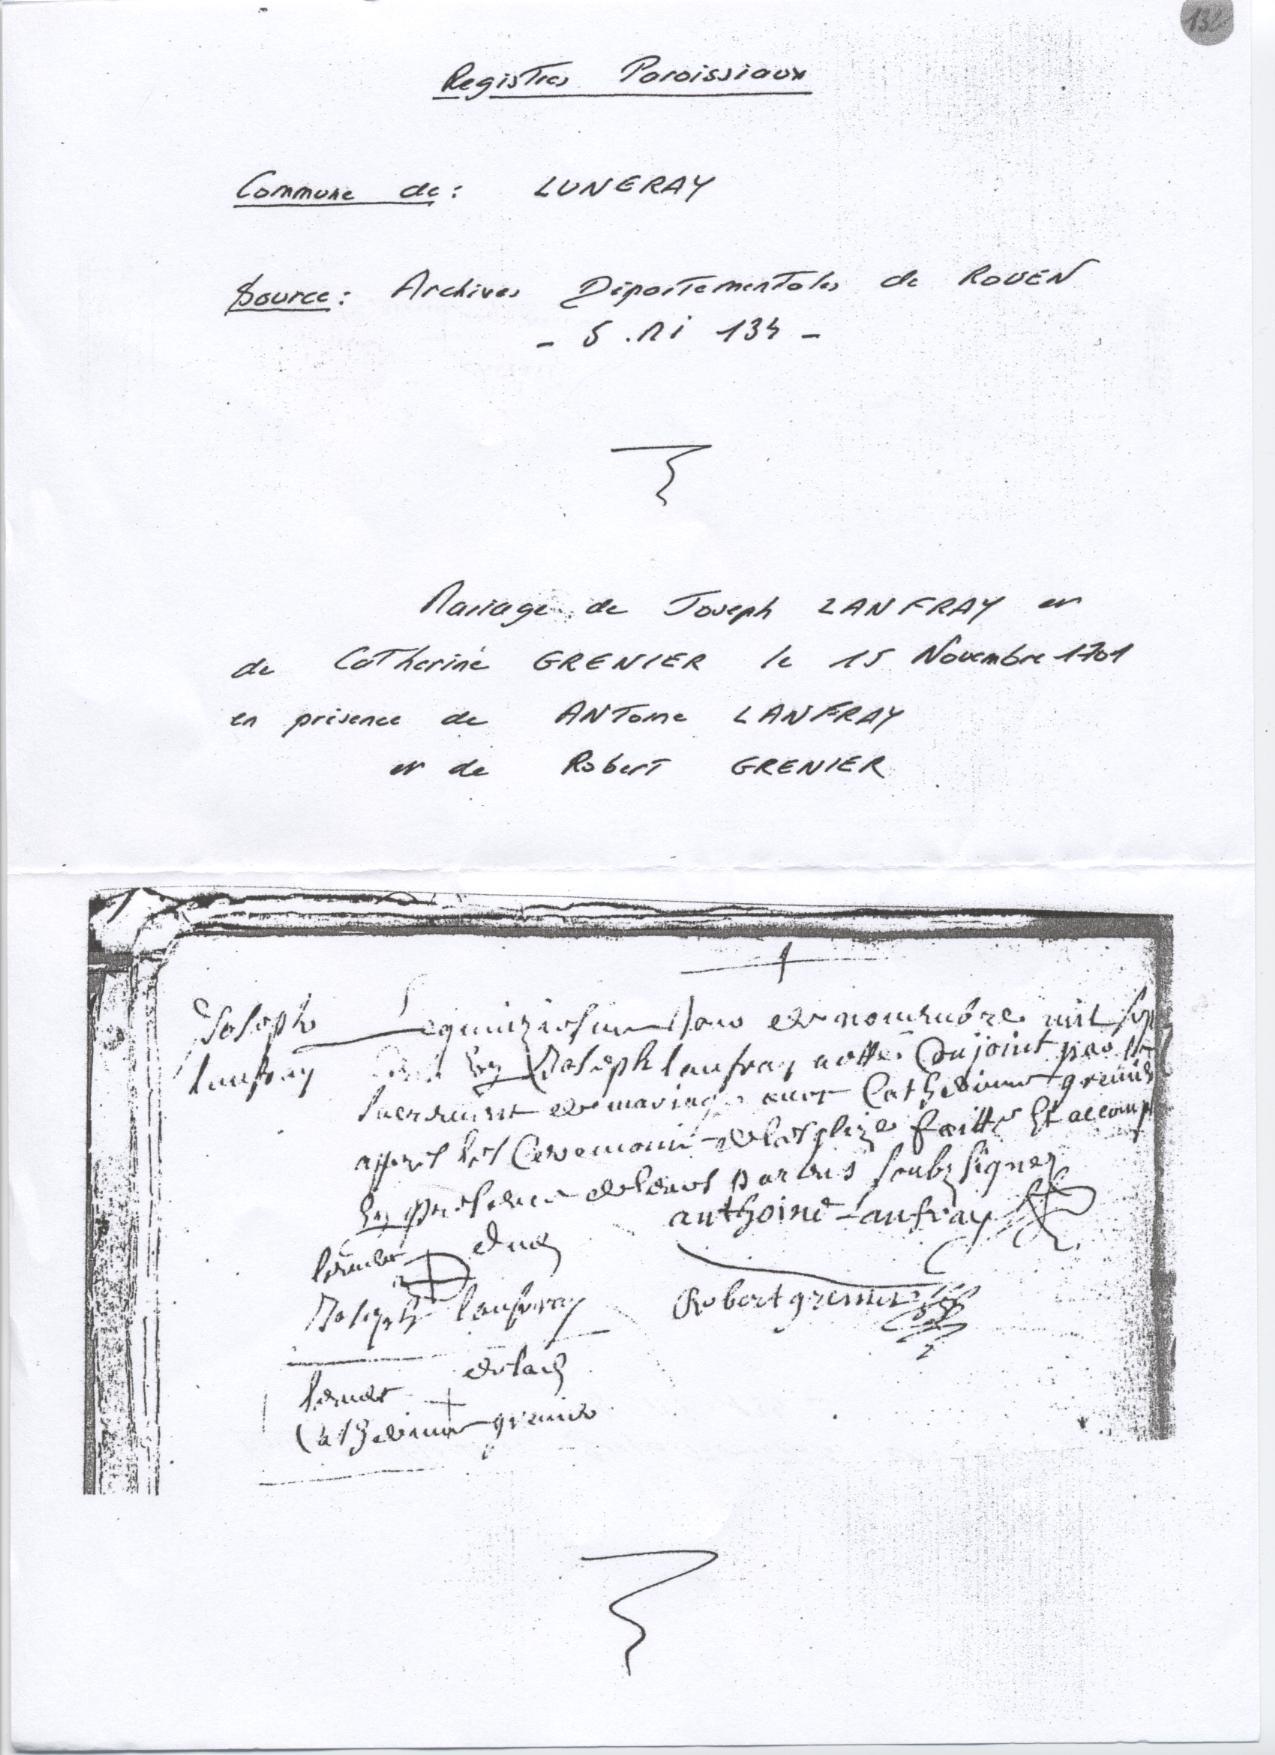 132
Registres Paroissiaux
Commune de : LUNERAY
Source : Archives Départementales de ROUEN
- 5 . Mi 134 -
Mariage de Joseph LANFRAY et
de Catherine GRENIER le 15 Novembre 1701
en présence de ANToine LANFRAY
et de Robert GRENIER
Joseph
lanfray
Le quinziesme Jour de nouembre mil sep
Joseph lanfray a este Conjoint par le
sacrement de mariage auec Catherine grenier
appres les Ceremonies de leglize faitte Et accomp
En presence de leurs parens soubz signez
anthoine lanfray
Robert grenier
Joseph lanfray
de lad
Catherine grenier